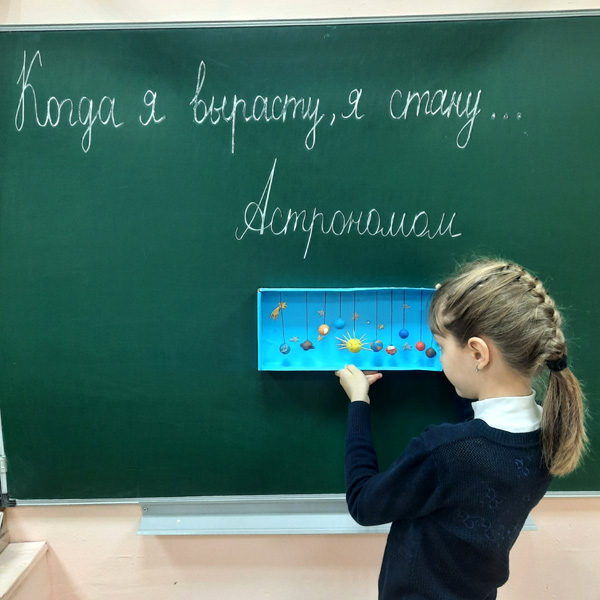 Когда я вырасту, я стану...
Астрономом